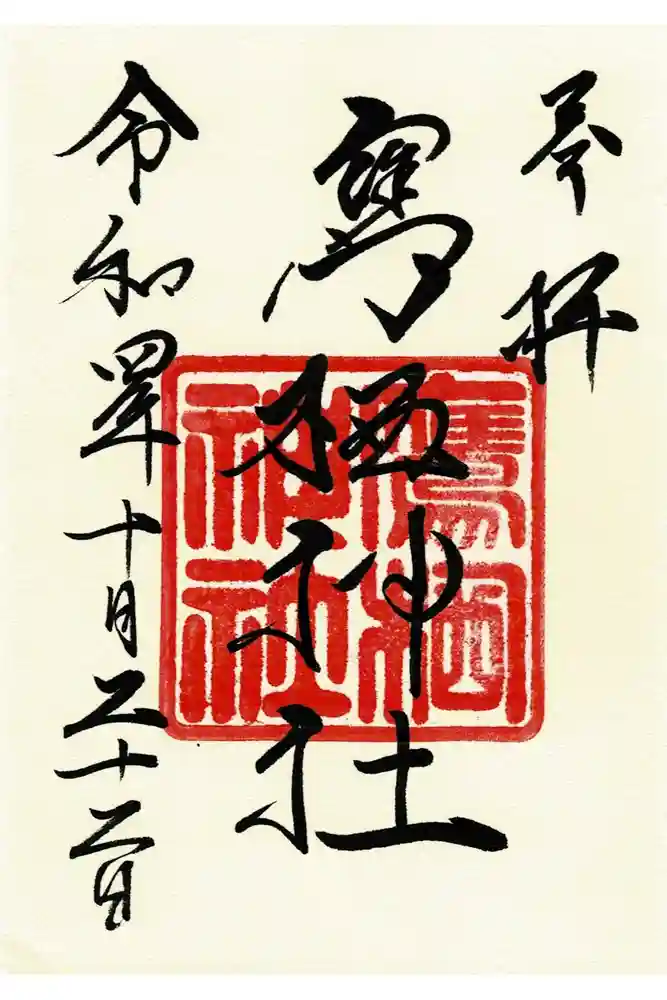 奉拝
鷹栖神社
令和四年十月二十二日
鷹栖
神社